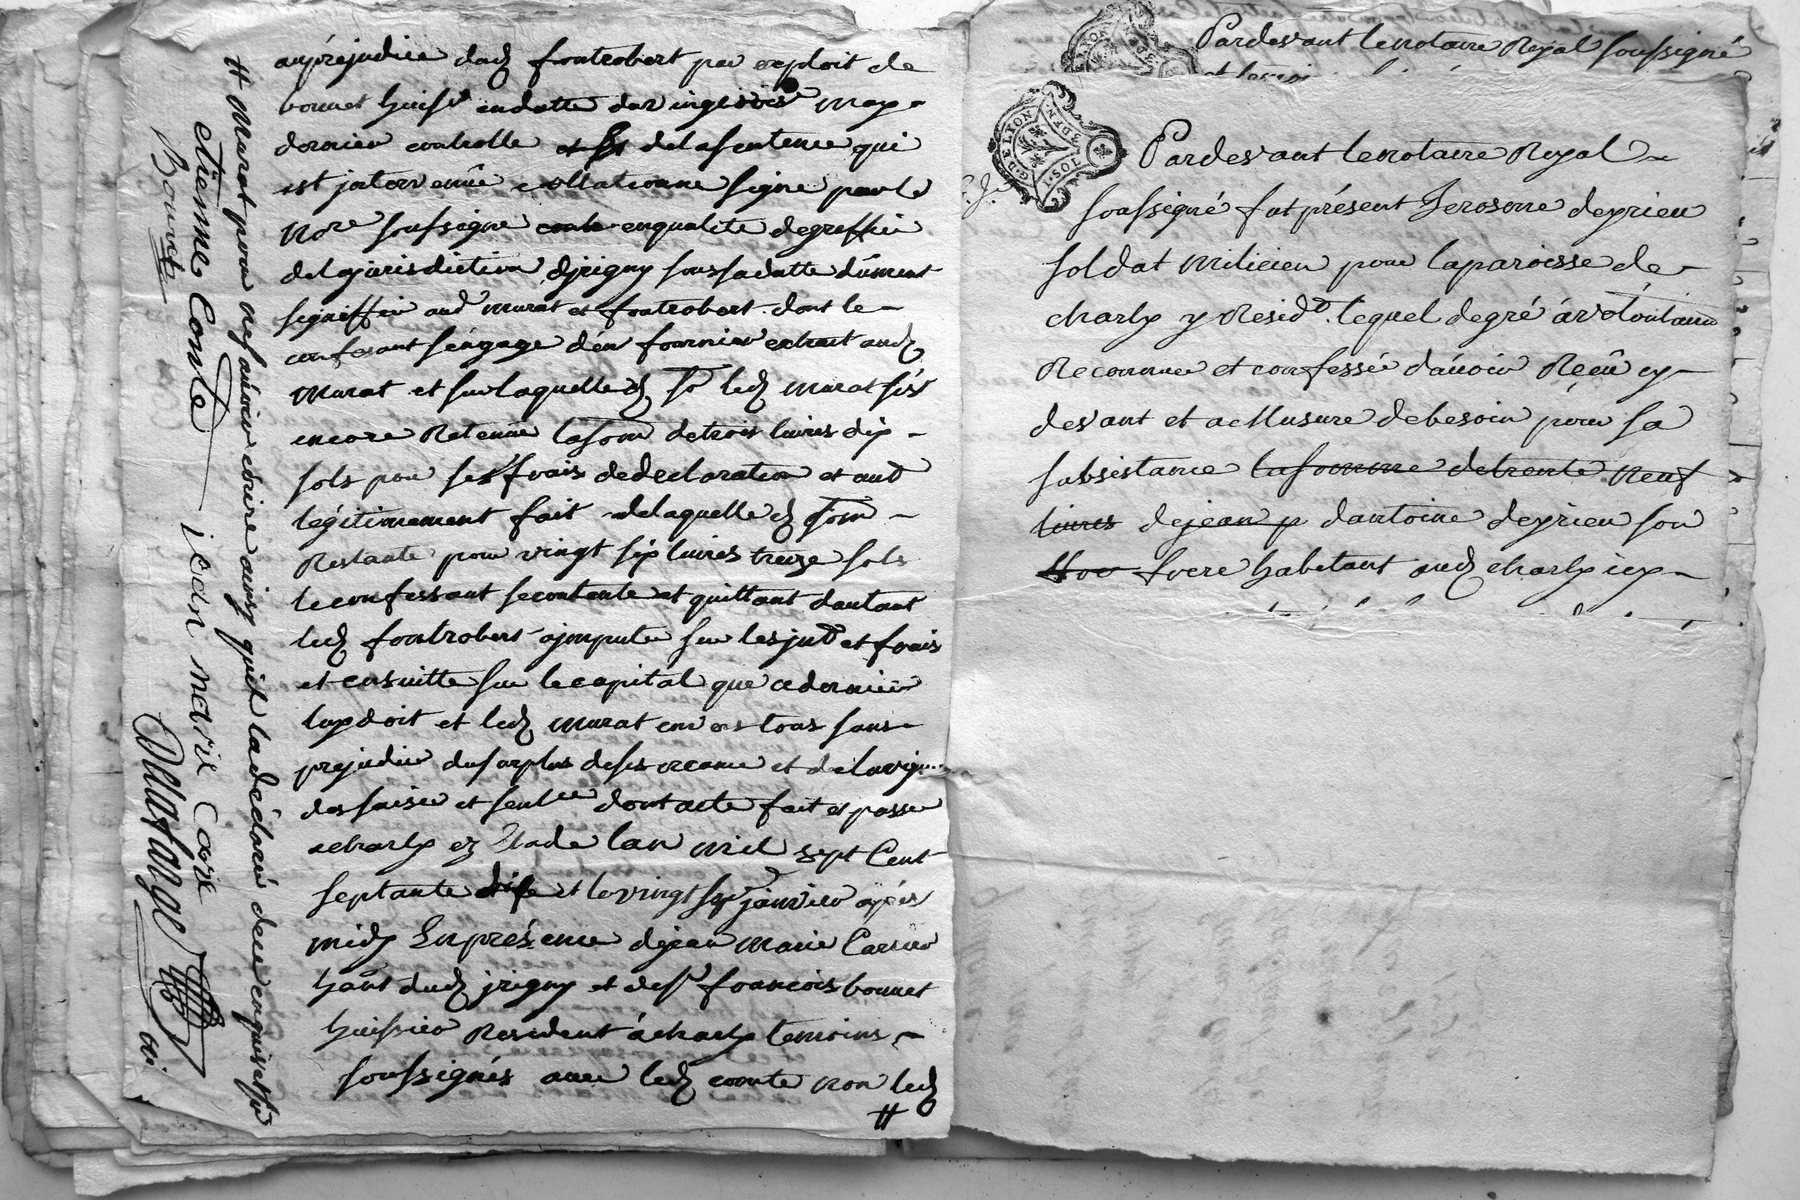 au préjudice dud fontrobert par exploit de
bonnet huissr en datte du vingt trois may
dernier controllé et de la sentence qui
est jntervenüe collationné signé par le
Nore soussigné en qualité de greffier
de la jurisdiction d'jrigny sous sa datte düment
signiffié aud Murat et fontrobert dont le
confessant s'engage d'en fournir extrait aud
Murat et sur laquelle d so led murat s'és
encore Retenüe la som de trois livres dix
sols pour ses frais de declaration et aud
légitimement fait de laquelle d som
Restante pour vingt six livres treize sols
le confessant se contente et quittant d'autant
led fontrobert a jmputer sur les jntts et frais
et ensuitte sur le capital que ce dernier
luy doit et led murat envers tous sans
prejudice du surplus de ses creance et de la vigu
des saisie et sentce dont acte fait et passé
a charly ez Etude l'an mil sept Cent
septante et le vingt six janvier après
midy En présence de jean Marie Carrier
hant dud jrigny et de sr françois bonnet
huissier Resident à charly temoins
soussignés avec led comte non led
#
# Murat pour ne sçavoir écrire ainsy qu'il la déclaré de ce enquis et
etienne Conte jean marie Care
Bonnet Dussargel
Pardevant le notaire Royal soussigné
G. DE LYON
Pardevant le notaire Royal
soussigné fut présent Jerosme deyrieu
soldat Milicien pour la paroisse de
charly y Residt. lequel de gré à volontaire
Reconnue et confessée d'avoir Reçû cy
devant et a Musure de besoin pour sa
subsistance la somme de trente Neuf
livres de jean p d'antoine deyrieu son
frere habitant aud charly icy